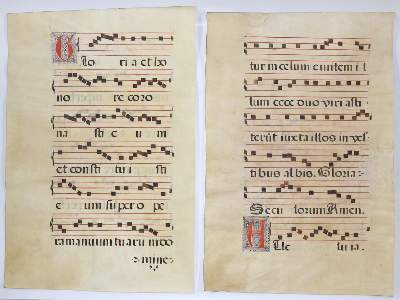 Glo ri a et ho
no re coro
na sti e u m
et consti tu i sti
e um super o pe
ra manuum tuarum do
mine
tur in celum euntem il
lum ecce duo viri asti
terūt iuxta illos in ves
tibus albis. Gloria
Secu lorum Amen.
Alle luia.